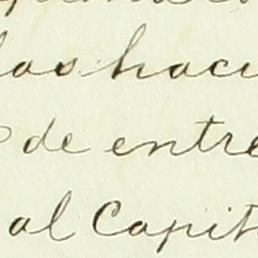 las haci
de entre
al Capit